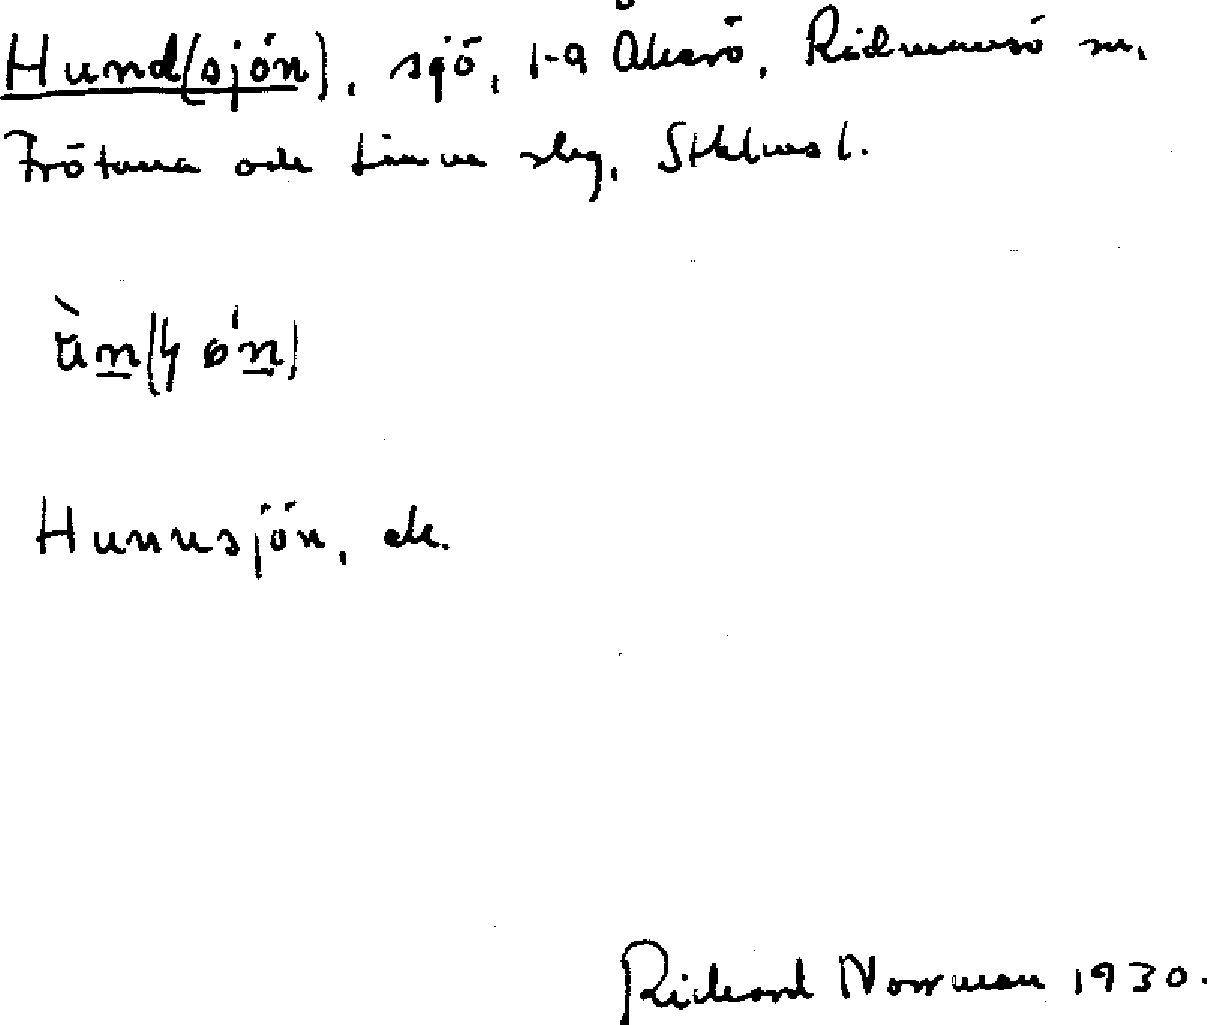 Hund(sjön), sjö, 1-a Åkerö, Ridmansö sn,
Frötuna och Länna slg, Sthlms l.
ùn(ɧ ö́n)
Hunnsjön, ek.
Richard Norrman 1930.